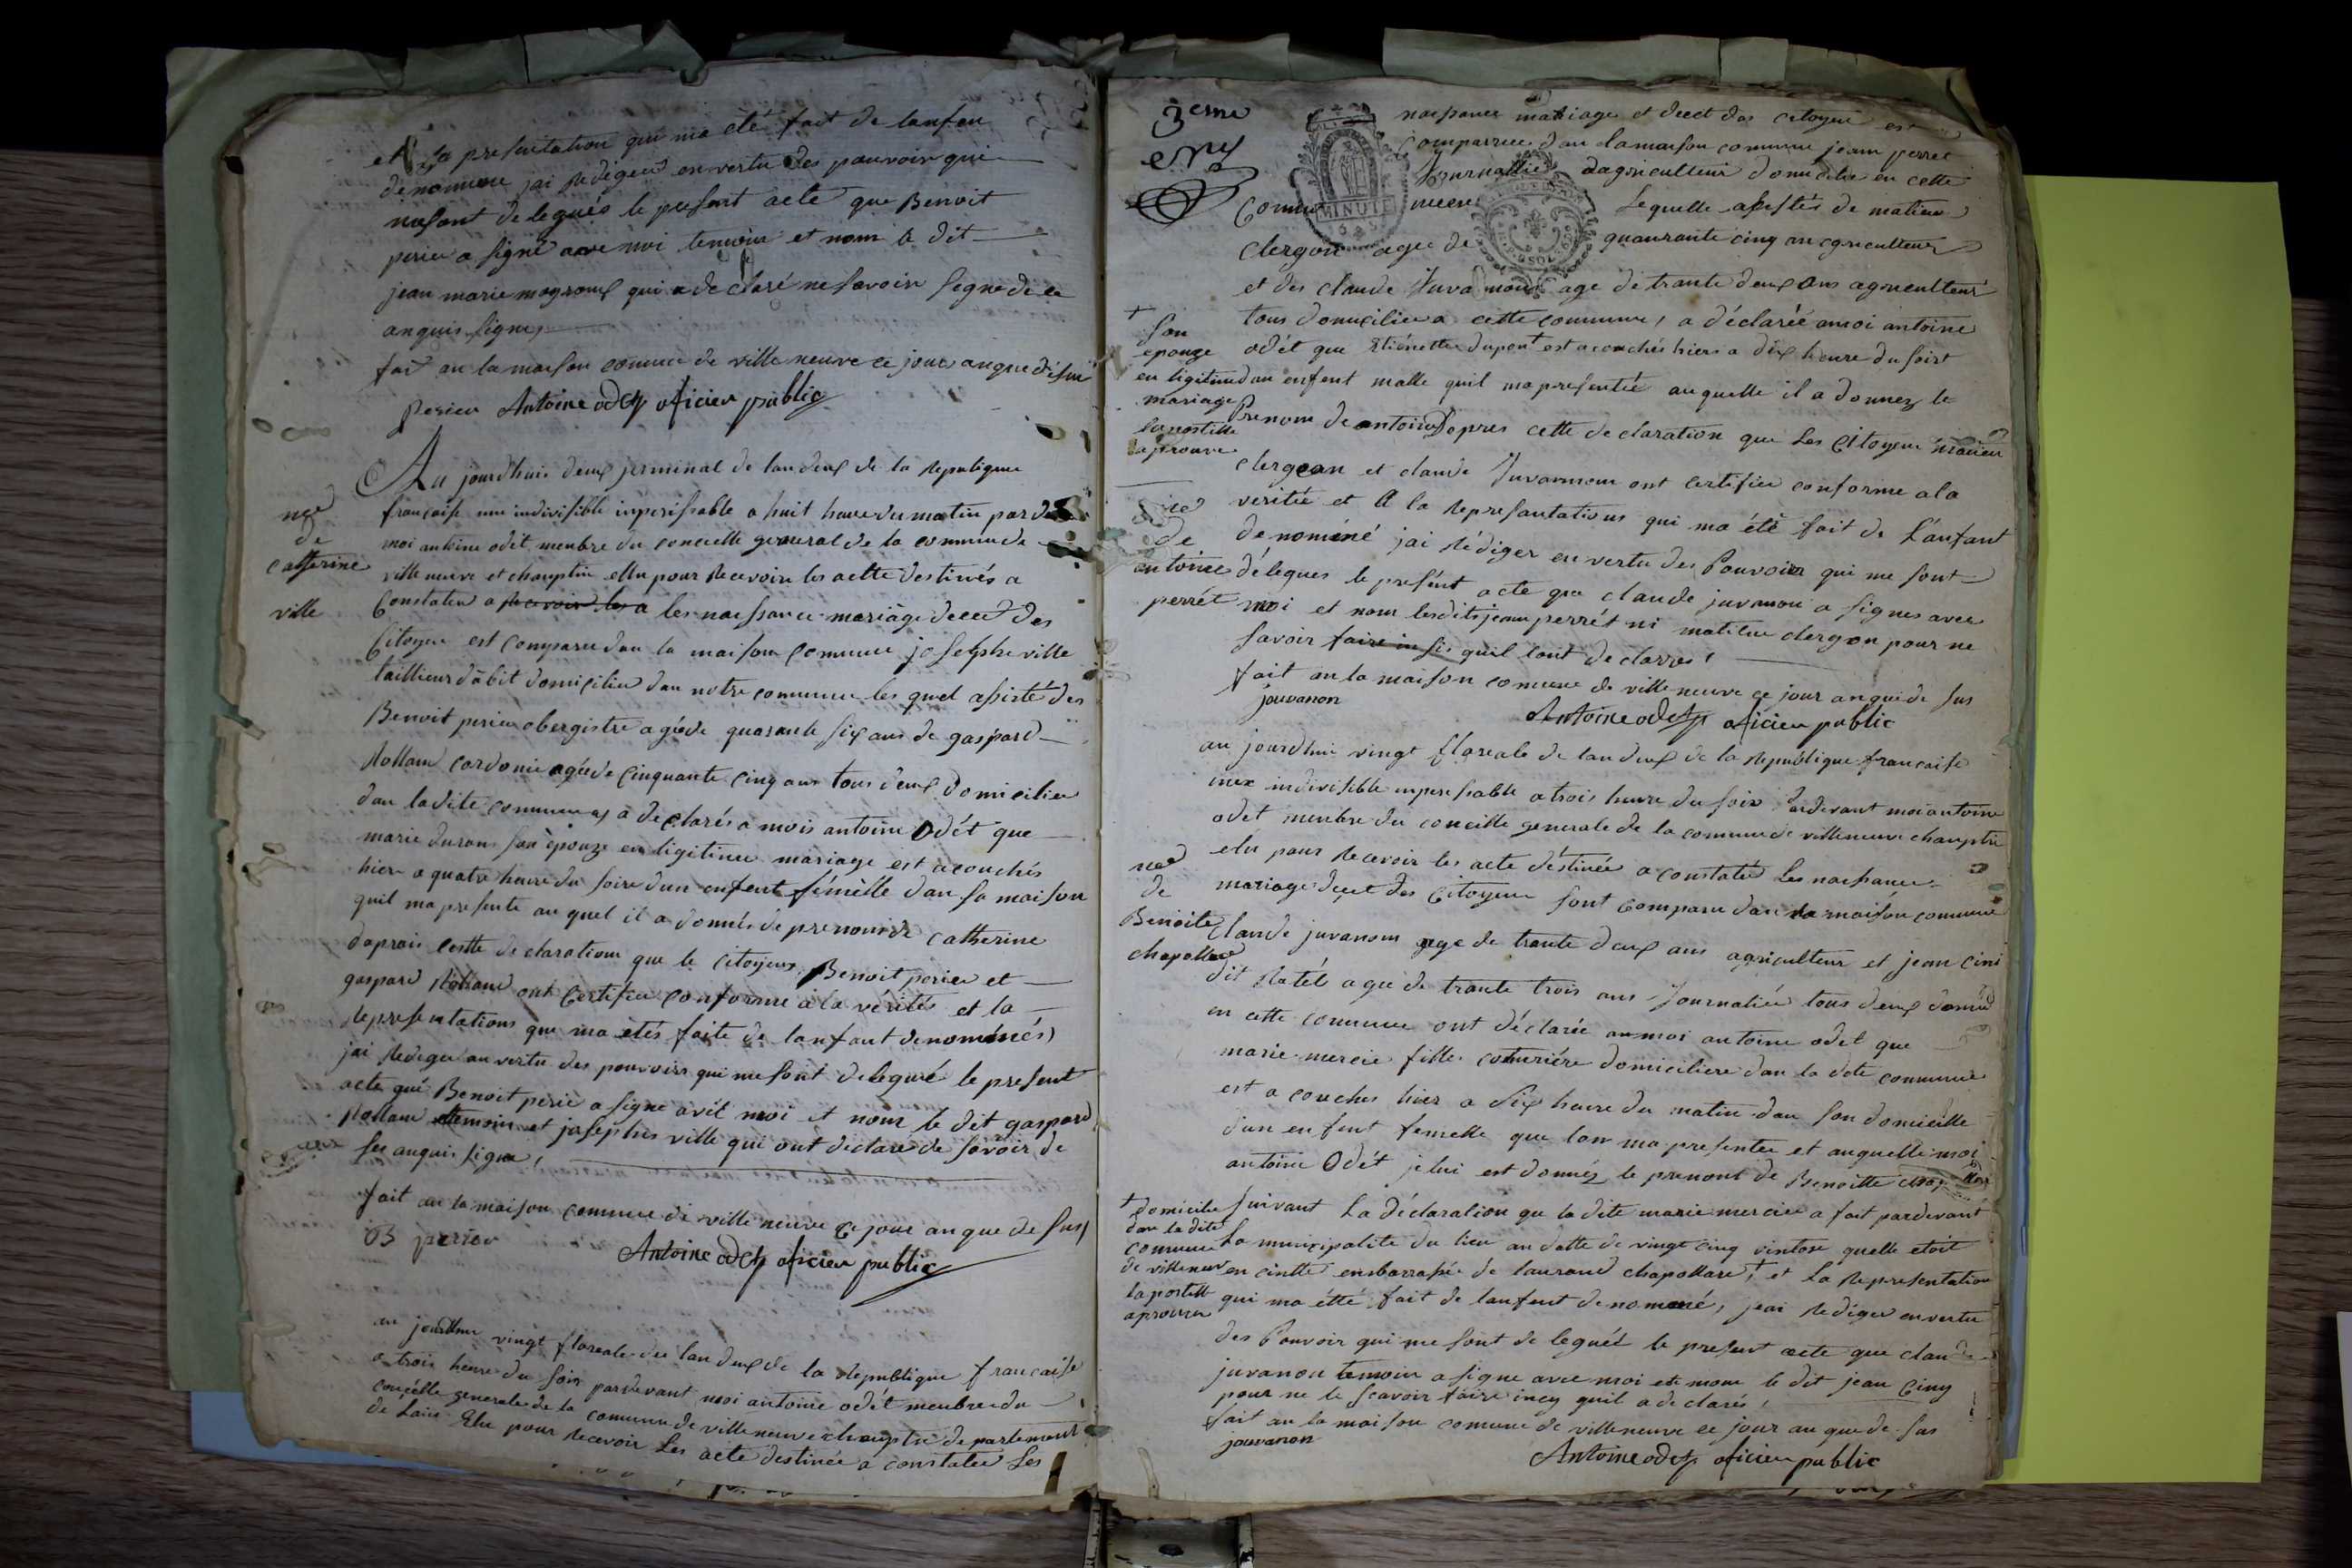 et la presentation qui ma été fait de lanfen
denommee jai redigeé en vertu des pouvoir qui
me sont delegués le present acte que Benoit
perier a signé avec moi temoin et nom le dit
jean marie mograud qui a declaré ne savoir signe de ce
anquis signe
fait an la maison comune de ville neuve ce jour anque dessu
perier Antoine odet oficier public
Au jourdhuis deux jerminal de lan deux de la republique
francaise une indivisible imperissable a huit heure du matin par de
moi antoine odet menbre du concielle general de la commune de
ville neuve et chanptin ellu pour recevoir les actte destinés a
Constater a recevoir les a les naissance mariage decet des
Citoyen est comparu dan la maison comune joselphe ville
taillieur dabit domicilier dan notre commune les quel assisté des
Benoit perier obergistre agé de quarante six ans de gaspard
Rolland cordonie agée de cinquante cinq ans tous deux domicilier
dan la dite commune a declarés a mois antoine Odét que
marie duran son épouze en ligitime mariage est acouchés
hier a quatre heure du soire dun enfent fémèlle dan sa maison
quil ma presente au quel il a donnés de prenom de Catherine
daprais cestte declaration que le citoyens Benoit perier et
gaspard Rolland ont Certifier conforme à la vérités et la
representations que ma etés faite de lanfant denominés
jai rediger an vertu des pouvoirs qui me sont delegué le present
acte qué Benoit perié a signe avèt moi et nom le dit gaspard
Rolland temoin et josephes ville qui ont declaré de savoir de
ser anquis signe
fait an la maison comune de ville neuve ce jour an que de sus
B perier Antoine odet oficier public
nce
de
catherine
ville
au jourdhui vingt floreale de lan deux de la republique francaise
a trois heure du soir pardevant moi antoine odét menbre du
conciélle generale de la comune de villeneuve chanptin departement
de Lain Elu pour recevoir Les acte destinée a constater Les
3eme
naissance mariage et decet des citoyen est
comparue dan la maison comune jean perret
Journallier dagriculteur domicilie en cette
Comu MINUTE neen Lequelle assistés de matieu
Clergon agee de quanrante cinq an agriculteur
et des claude Juvanon age de trante deux ans agriculteur
tous domicilier a cette commune, a déclareé amoi antoine
odét que Etiénette dupont + est acouchés hiers a dix heure du soirt
dun enfent malle quil ma presentét auquelle il a donnez le
prenom de antoine Dapres cette declaration que Les Citoyen matieu
clergon et claude Juvannon ont certifier conforme a la
veritée et A la representations qui ma été fait de L'anfant
denominé jai rédiger en vertu des Pouvoir qui me sont
délegues le presént acte que claude juvanon a signes avec
moi et nom lesdits jean perrét ni matieu clergon pour ne
savoir faire in sis quil lont declarrés
fait an la maison comune de ville neuve ce jour an que de sus
jouvanon Antoine odet oficier public
+
son
epouze
en ligitime
mariage
la postille
aprouve
nce
de
antoine
perrét
au jourdhui vingt floreale de lan deux de la republique francaise
une indivisible imperissable a trois heure du soir pardevant moi antoine
odet menbre du concielle generale de la comune de villeneuve chanptin
elu pour recevoir les acte déstinée a constater Les naissance
mariage decet des Citoyen sont comparu dan la maison comune
Claude juvanon age de trante deux ans agriculteur et jean Cini
dit Ratét agée de trante trois ans Journaliér tous deux domici
en cette commune ont déclarée amoi antoine odet que
marie mercie fille couturiére domiciliere dan la dite commune
est acouches hier a six heure du matin dan son domicille
dun enfent femelle que lon ma presentee et auquelle moi
antoine Odét je lui est donnéz le prenont de Benoitte
suivant La déclaration que la dite marie mercier a fait pardevant
La municipalite du lieu an datte de vingt cinq vintose quelle etoit
en cintte enbarassée de laurand chapolland + et La representation
qui ma étté fait de lanfent denomméé, jeai rediger en vertu
des Pouvoir qui me sont de leguét le present acte que claude
juvanon temoin a signe avec moi et nom le dit jean Ciny
pour ne le scavoir faire incy quil a declarés
fait an la maison comune de villeneuve ce jour an que de sus
jouvanon
Antoine odet oficier public
nce
de
Benoite
chapolland
+ domicilie
dan la dite
comune
de villeneuv
la postill
aprouve